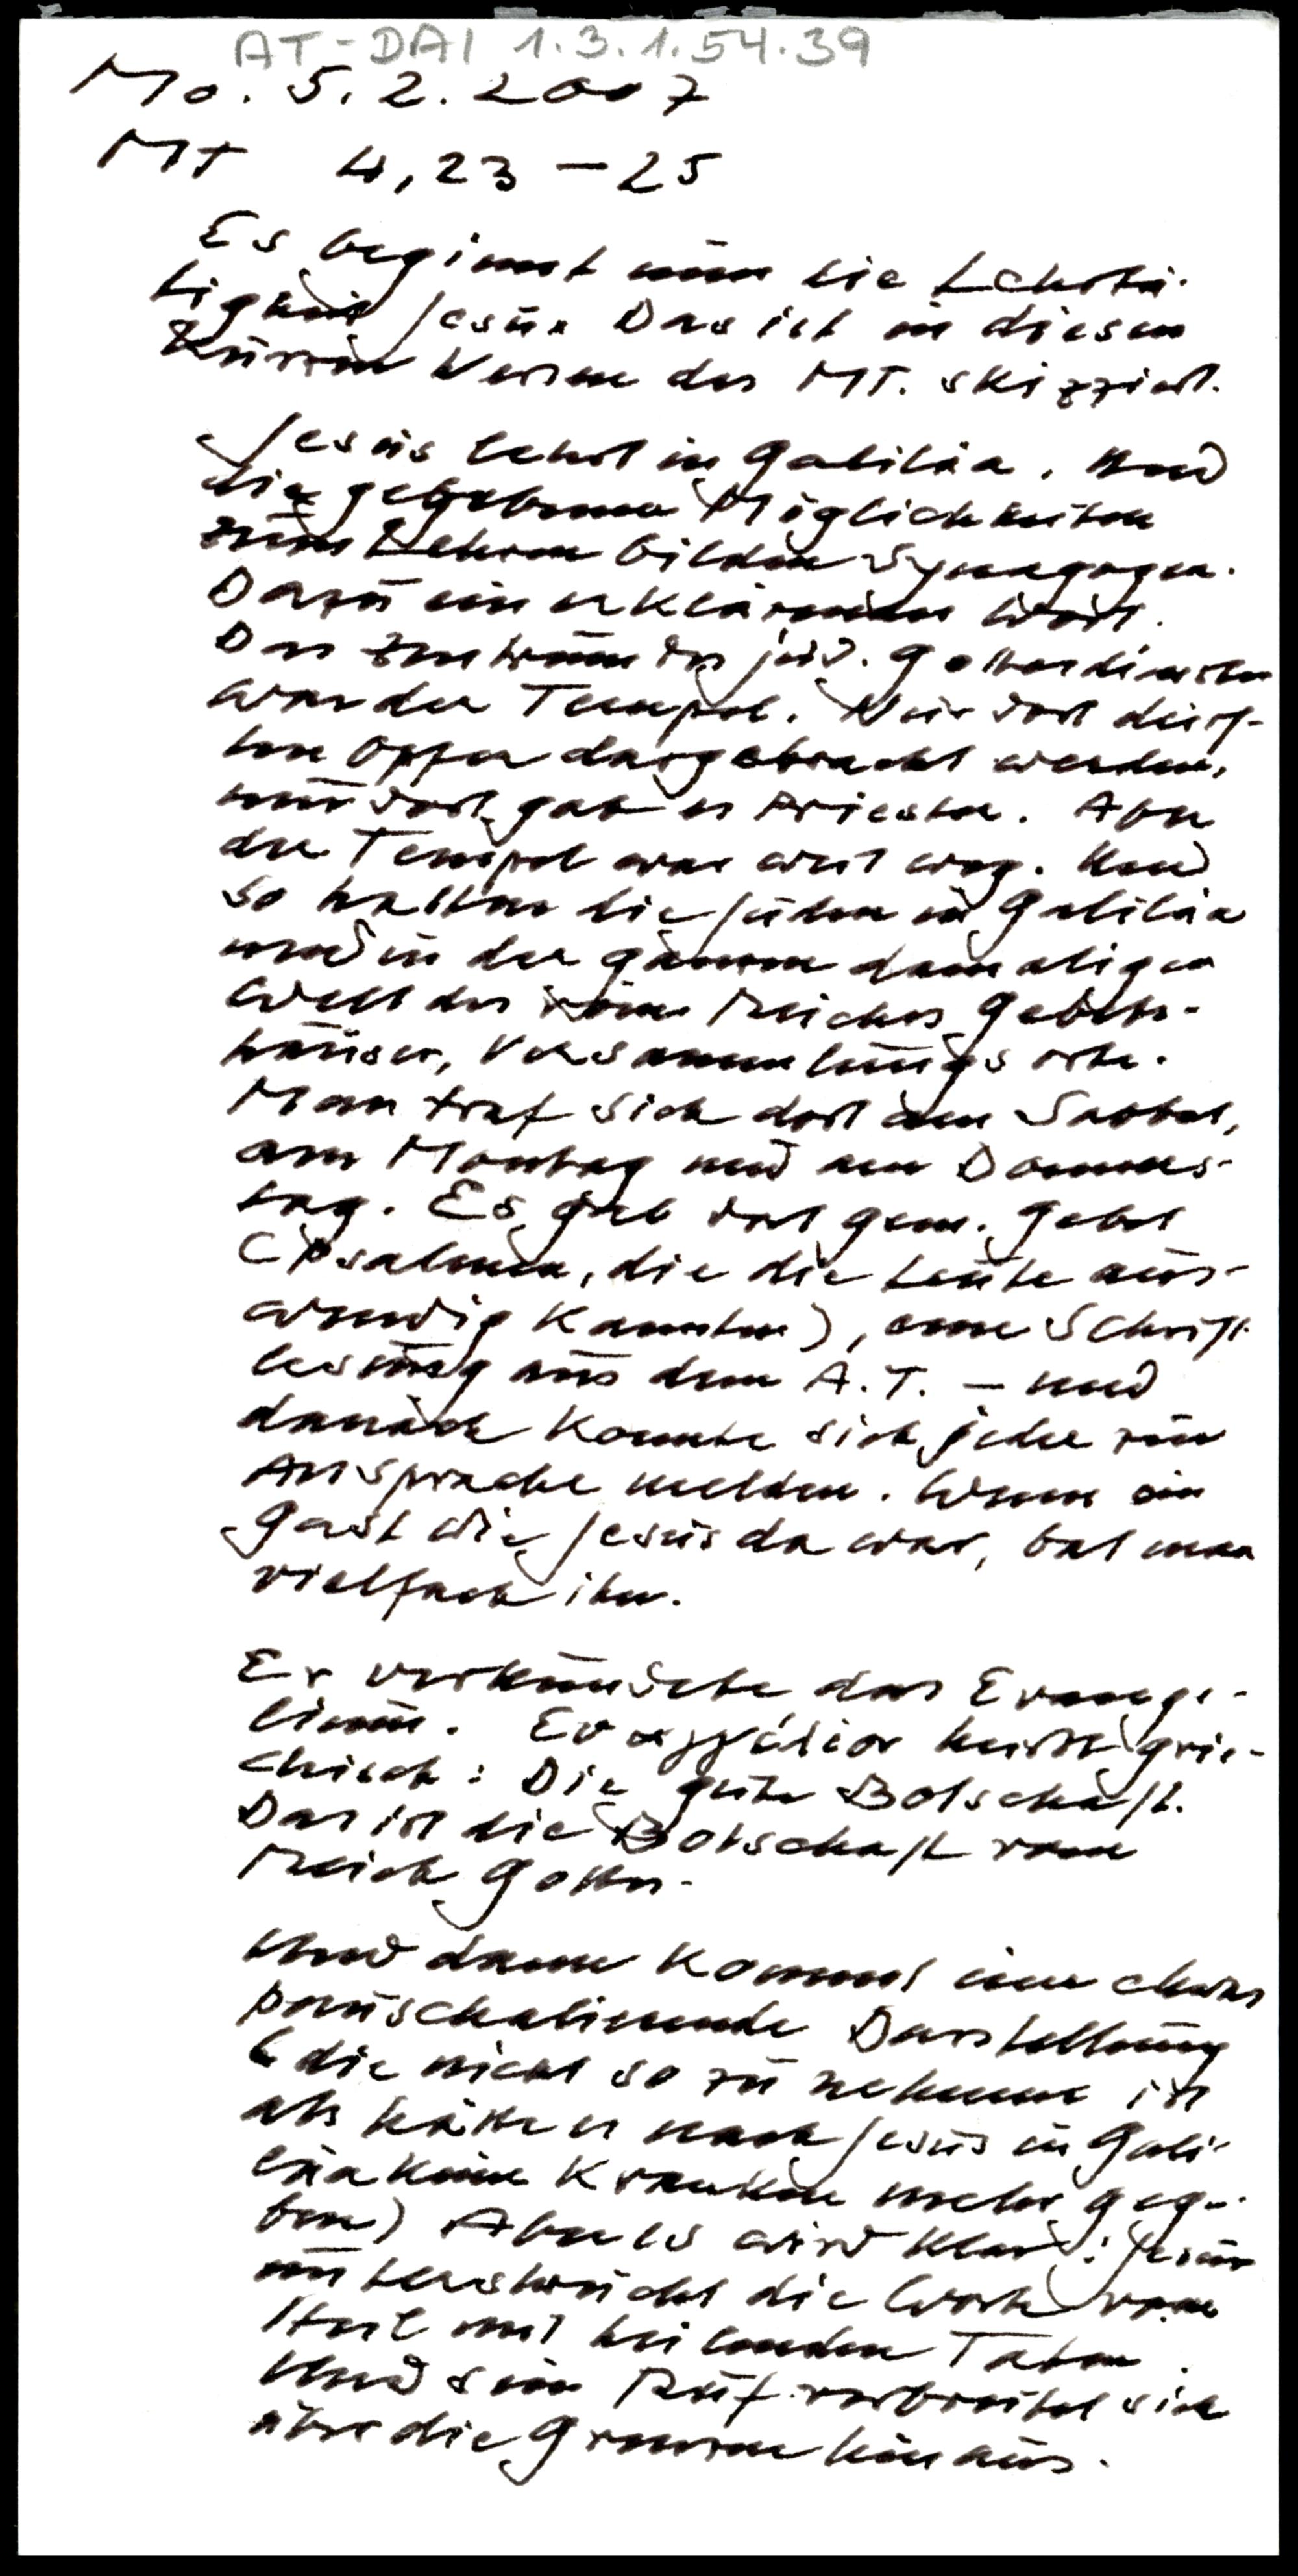 AT-DAI 1.3.1.54.39
Mo. 5.2.2007
MT 4,23-25
Es beginnt nun die Lehrtä-
tigkeit Jesu. Das ist in diesen
kurzen Versen des MT. skizziert.
Jesus lehrt in Galiläa. Und
die gegebenen Möglichkeiten
zum Lehren bilden Synagogen.
Dazu ein erklärendes Wort.
Das Zentrum des jüd. Gottesdienstes
war der Tempel. Nur dort durf-
ten Opfer dargebracht werden,
nur dort gab es Priester. Aber
der Tempel war weit weg. Und
so hatten die Juden in Galiläa
und in der ganzen damaligen
Welt des röm. Reiches Gebets-
häuser, Versammlungsorte.
Man traf sich dort am Sabbat,
am Montag und am Donners-
tag. Es gab dort gem. Gebet
(Psalmen, die die Leute aus-
wendig kannten), eine Schrift-
lesung aus dem A.T. - und
danach konnte sich jeder zur
Ansprache melden. Wenn ein
Gast wie Jesus da war, bat man
vielfach ihn.
Er verkündete das Evange-
lium. Ευαγγέλιον heisst grie-
chisch: Die gute Botschaft.
Das ist die Botschaft vom
Reich Gottes.
Und dann kommt eine etwas
pauschalierende Darstellung
(die nicht so zu nehmen ist
als hätte es nach Jesus in Gali-
läa keine Kranken mehr gege-
ben) Aber es wird klar: Jesus
unterstreicht die Worte vom
Heil mit heilenden Taten.
Und sein Ruf verbreitet sich
über die Grenzen hinaus.